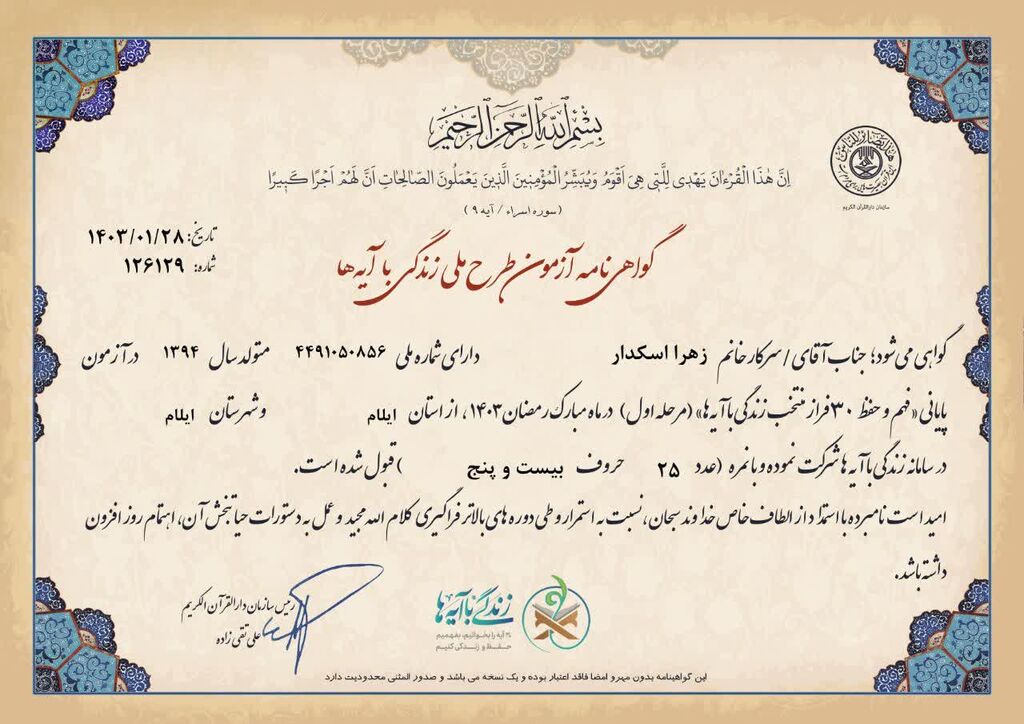 بِسْمِ ٱللَّهِ ٱلرَّحْمَٰنِ ٱلرَّحِيمِ
إِنَّ هَٰذَا الْقُرْءَانَ يَهْدِي لِلَّتِي هِيَ أَقْوَمُ وَيُبَشِّرُ الْمُؤْمِنِينَ الَّذِينَ يَعْمَلُونَ الصَّالِحَاتِ أَنَّ لَهُمْ أَجْرًا كَبِيرًا
(سوره اسراء / آیه ۹)
سازمان دارالقرآن الکریم
تاریخ: ۱۴۰۳/۰۱/۲۸
شماره: ۱۲۶۱۲۹
گواهی نامه آزمون طرح ملی زندگی با آیه ها
گواهی می شود؛ جناب آقای / سرکار خانم زهرا اسکدار دارای شماره ملی ۴۴۹۱۰۵۰۸۵۶ متولد سال ۱۳۹۴ در آزمون
پایانی «فهم و حفظ ۳۰ فراز منتخب زندگی با آیه ها» (مرحله اول) در ماه مبارک رمضان ۱۴۰۳، از استان ایلام و شهرستان ایلام
در سامانه زندگی با آیه ها شرکت نموده و با نمره (عدد ۲۵ حروف بیست و پنج ) قبول شده است.
امید است نامبرده با استمداد از الطاف خاص خداوند سبحان، نسبت به استمرار و طی دوره های بالاتر فراگیری کلام الله مجید و عمل به دستورات حیاتبخش آن، اهتمام روز افزون
داشته باشد.
رییس سازمان دارالقرآن الکریم
علی تقی زاده
زندگی با آیه ها
۳۰ آیه را بخوانیم، بفهمیم
حفظ و زندگی کنیم
این گواهینامه بدون مهر و امضا فاقد اعتبار بوده و یک نسخه می باشد و صدور المثنی محدودیت دارد